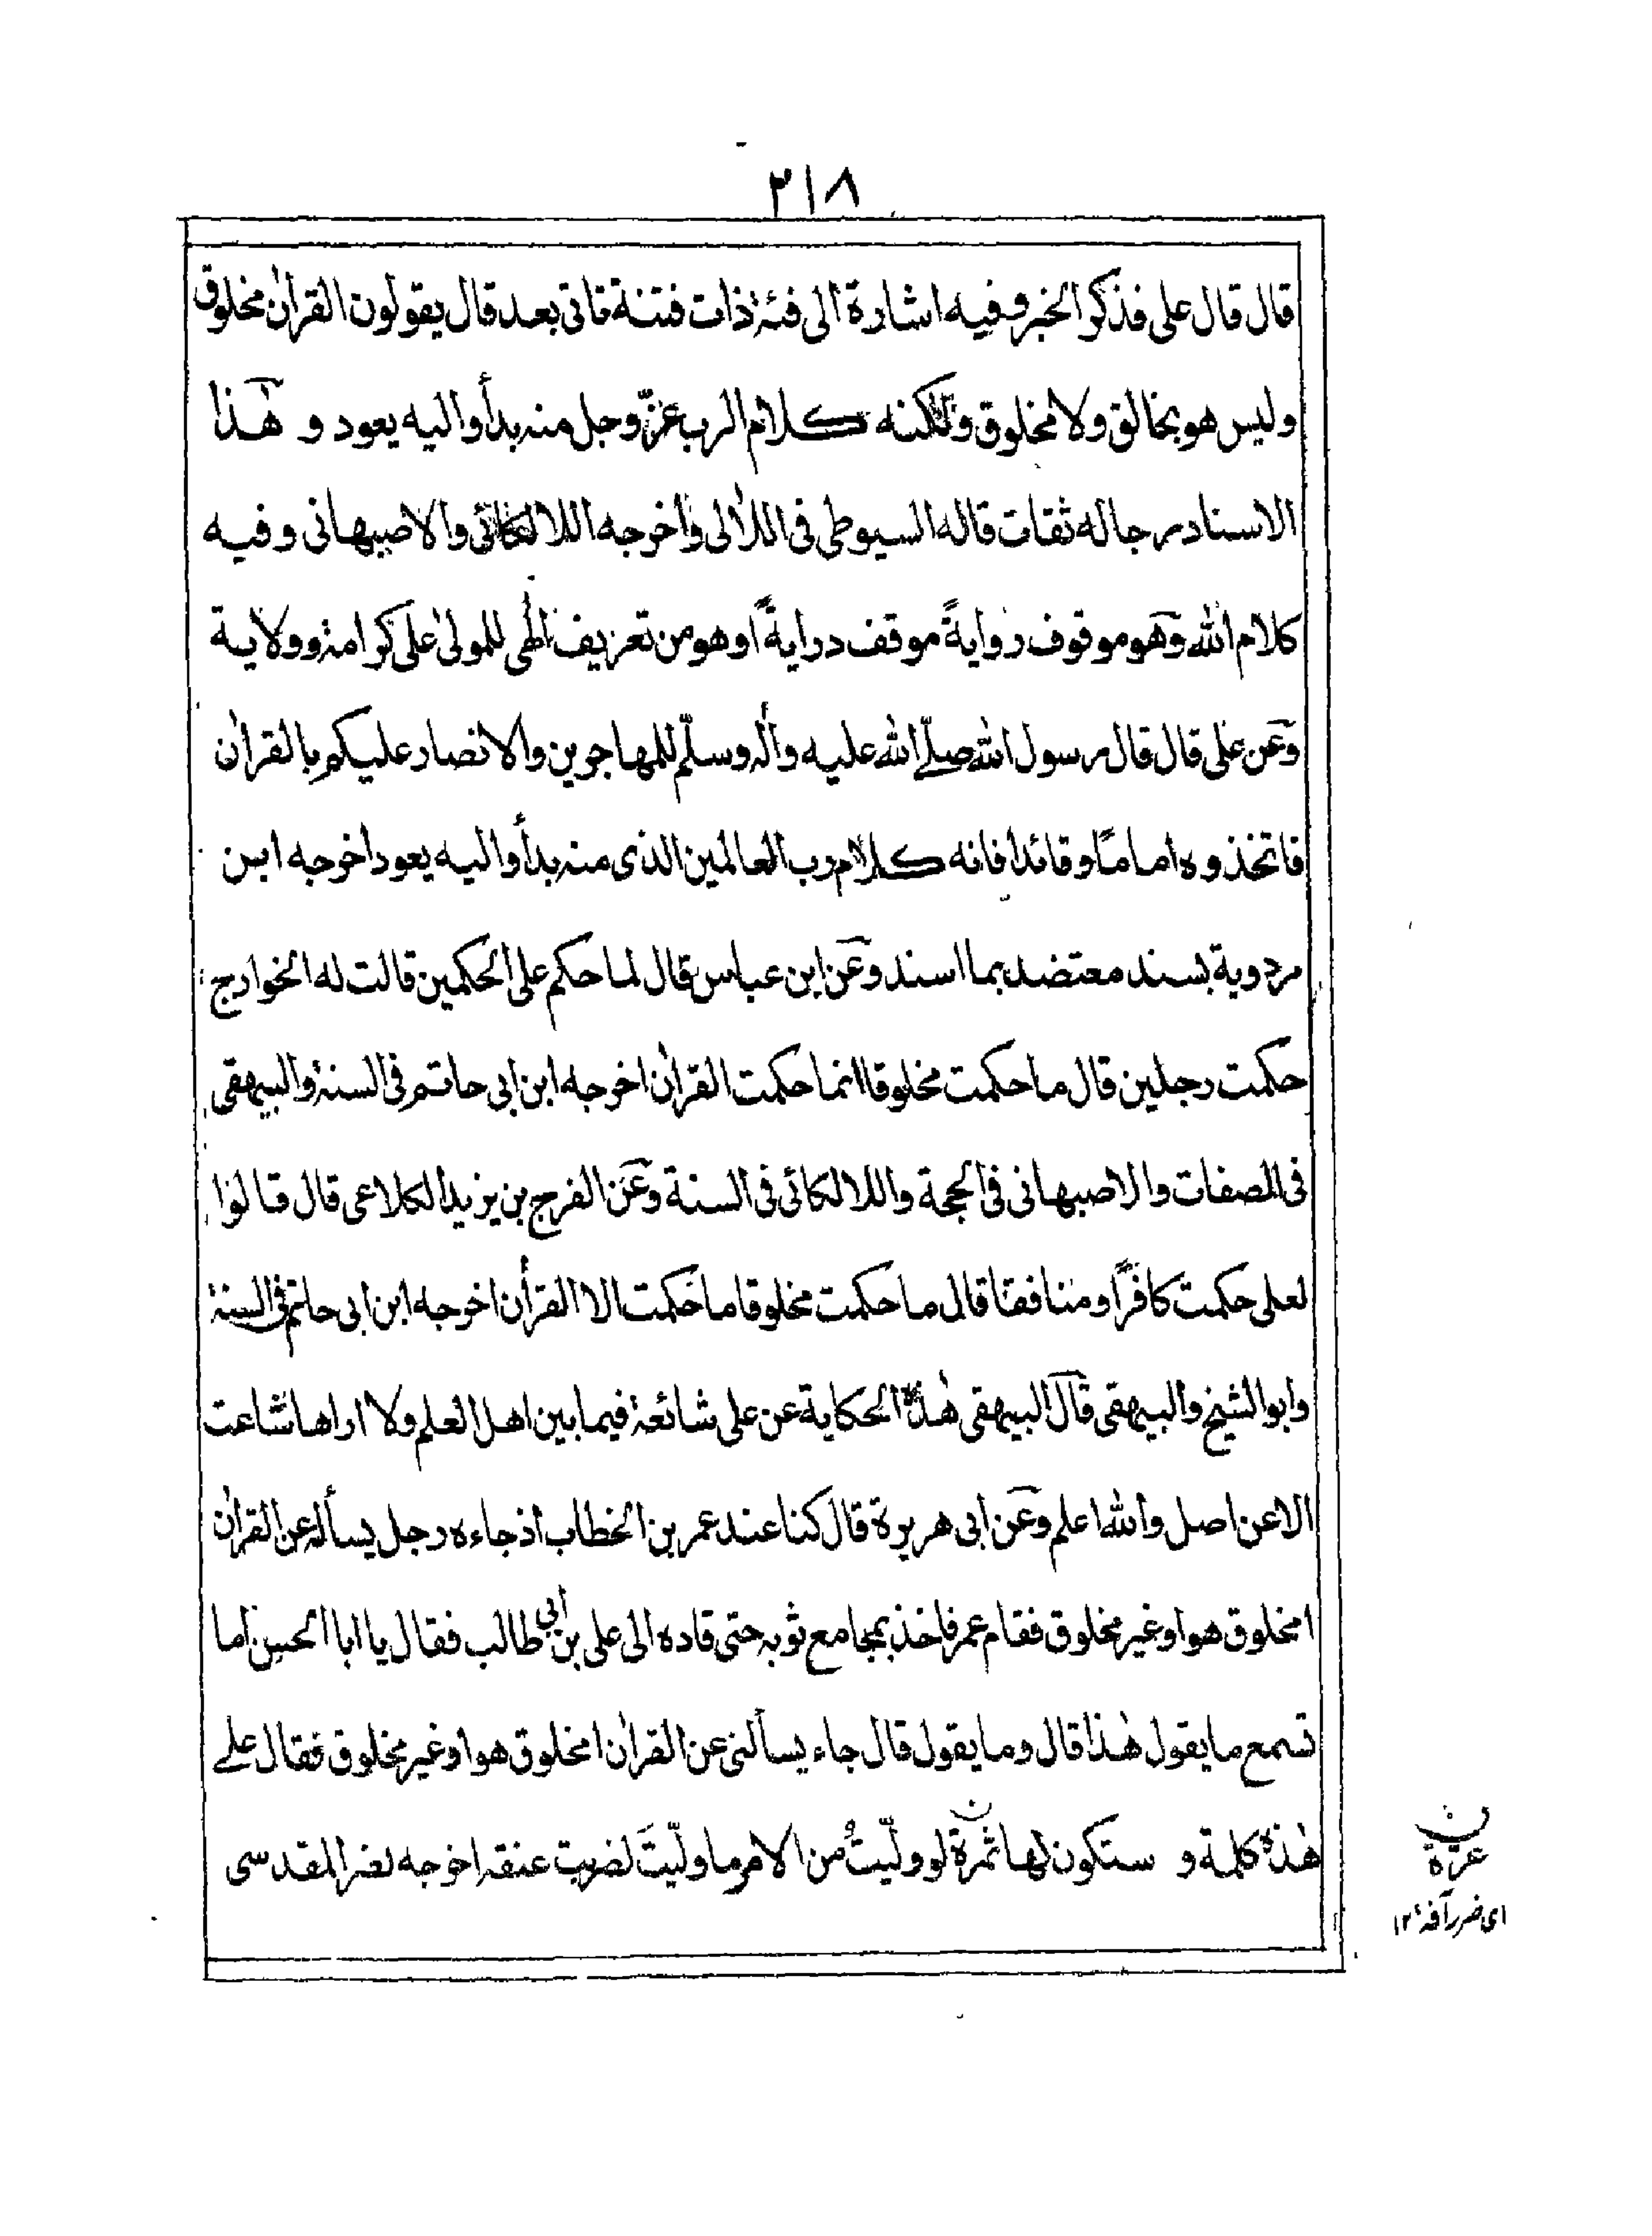 ٢١٨
قال قال على فذكر الخبر وفيه اشارة الى فئة ذات فتنة تاتى بعد قال يقولون القرأن مخلوق
وليس هو بخالق ولا مخلوق ولكنه كلام الرب عزّ وجل منه بدأ واليه يعود و هذا
الاسناد رجاله ثقات قاله السيوطى فى اللألى واخرجه اللالكائى والاصبهانى وفيه
كلام الله وهو موقوف روايةً موقف درايةً او هو من تعريف الٰهى للمولىٰ على كرامة وولاية
وعن على قال قال رسول الله صلّے الله عليه وأله وسلّم للمهاجرين والانصار عليكم بالقرأن
فاتخذوه امامًا وقائدا فانه كلام رب العالمين الذى منه بدأ واليه يعود اخرجه ابن
مردوية بسند معتضد بما اسند وعن ابن عباس قال لما حكم على الحكمين قالت له الخوارج
حكمت رجلين قال ما حكمت مخلوقا انما حكمت القرأن اخرجه ابن ابى حاتم فى السنة والبيهقى
فى الصفات والاصبهانى فى الحجة واللالكائى فى السنة وعن الفرج بن يزيد الكلاعى قال قالوا
لعلى حكمت كافرًا ومنافقا قال ما حكمت مخلوقا ما حكمت الا القرأن اخرجه ابن ابى حاتم فى السنة
وابو الشيخ والبيهقى قال البيهقى هٰذه الحكاية عن على شائعة فيما بين اهل العلم ولا اراها شاعت
الا عن اصل والله اعلم وعن ابى هريرة قال كنا عند عمر بن الخطاب اذ جاءه رجل يسأله عن القرأن
امخلوق هو او غير مخلوق فقام عمر فاخذ بمجامع ثوبه حتى قاده الى على بن ابي طالب فقال يا ابا الحسن اما
تسمع ما يقول هٰذا قال وما يقول قال جاء يسألنى عن القرأن امخلوق هو او غير مخلوق فقال علے
هٰذه كلمة و ستكون لها ثمرة لو ولّيتُ من الامر ما ولّيتَ لضربت عنقه اخرجه نصر المقدسى
ن
عرّة
اى ضرر آفة ١٢